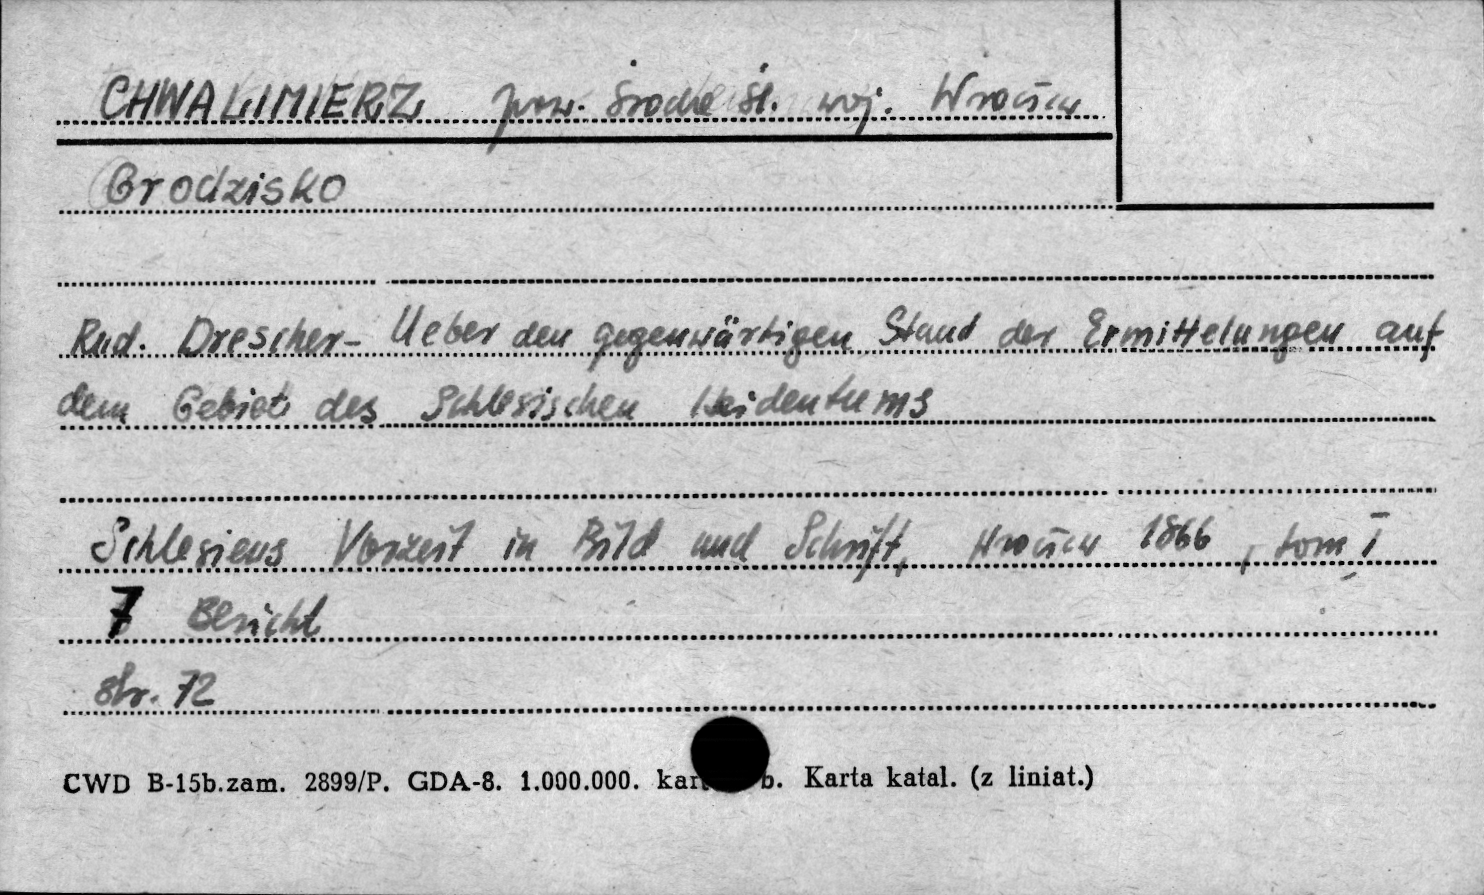 CHWALIMIERZ pow. Środa Śl. woj. Wrocław
Grodzisko
Rud. Drescher - Ueber den gegenwärtigen Stand der Ermittelungen auf
dem Gebiet des Schlesischen Heidentums
Schlesiens Vorzeit in Bild und Schrift, Wrocław 1866, tom I
7 Bericht
str. 72
CWD B-15b.zam. 2899/P. GDA-8. 1.000.000. b. Karta katal. (z liniat.)